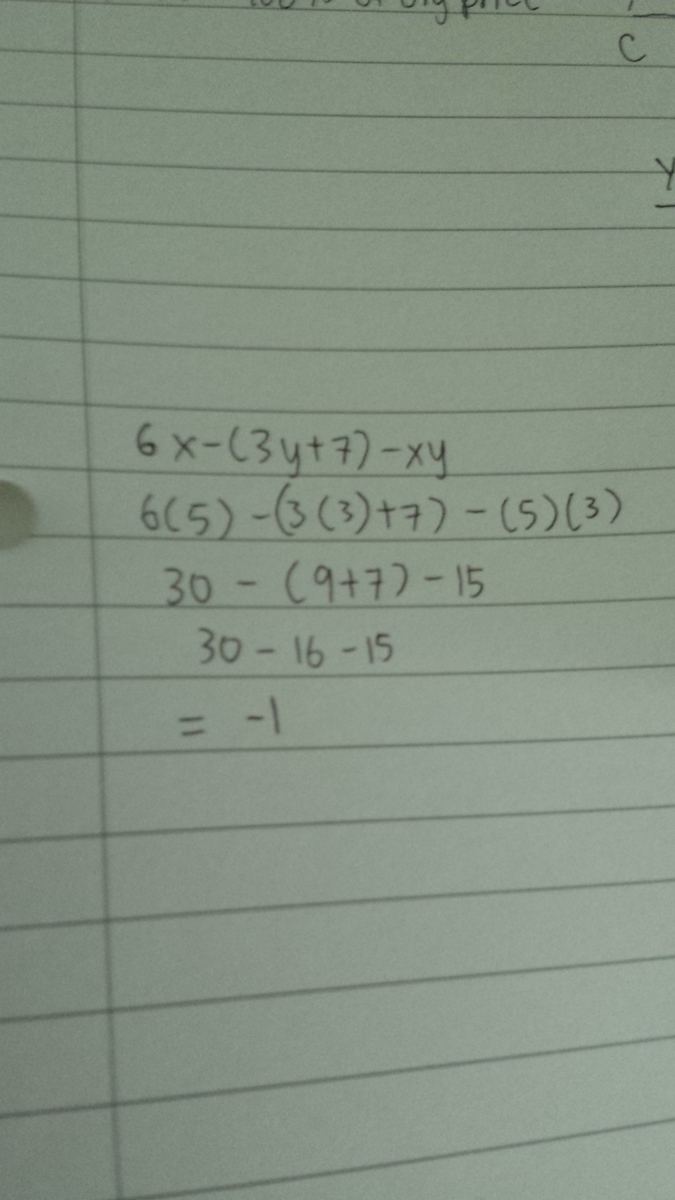 C
Y
6x-(3y+7)-xy
6(5) -(3(3)+7) - (5)(3)
30 - (9+7) - 15
30 - 16 - 15
= -1